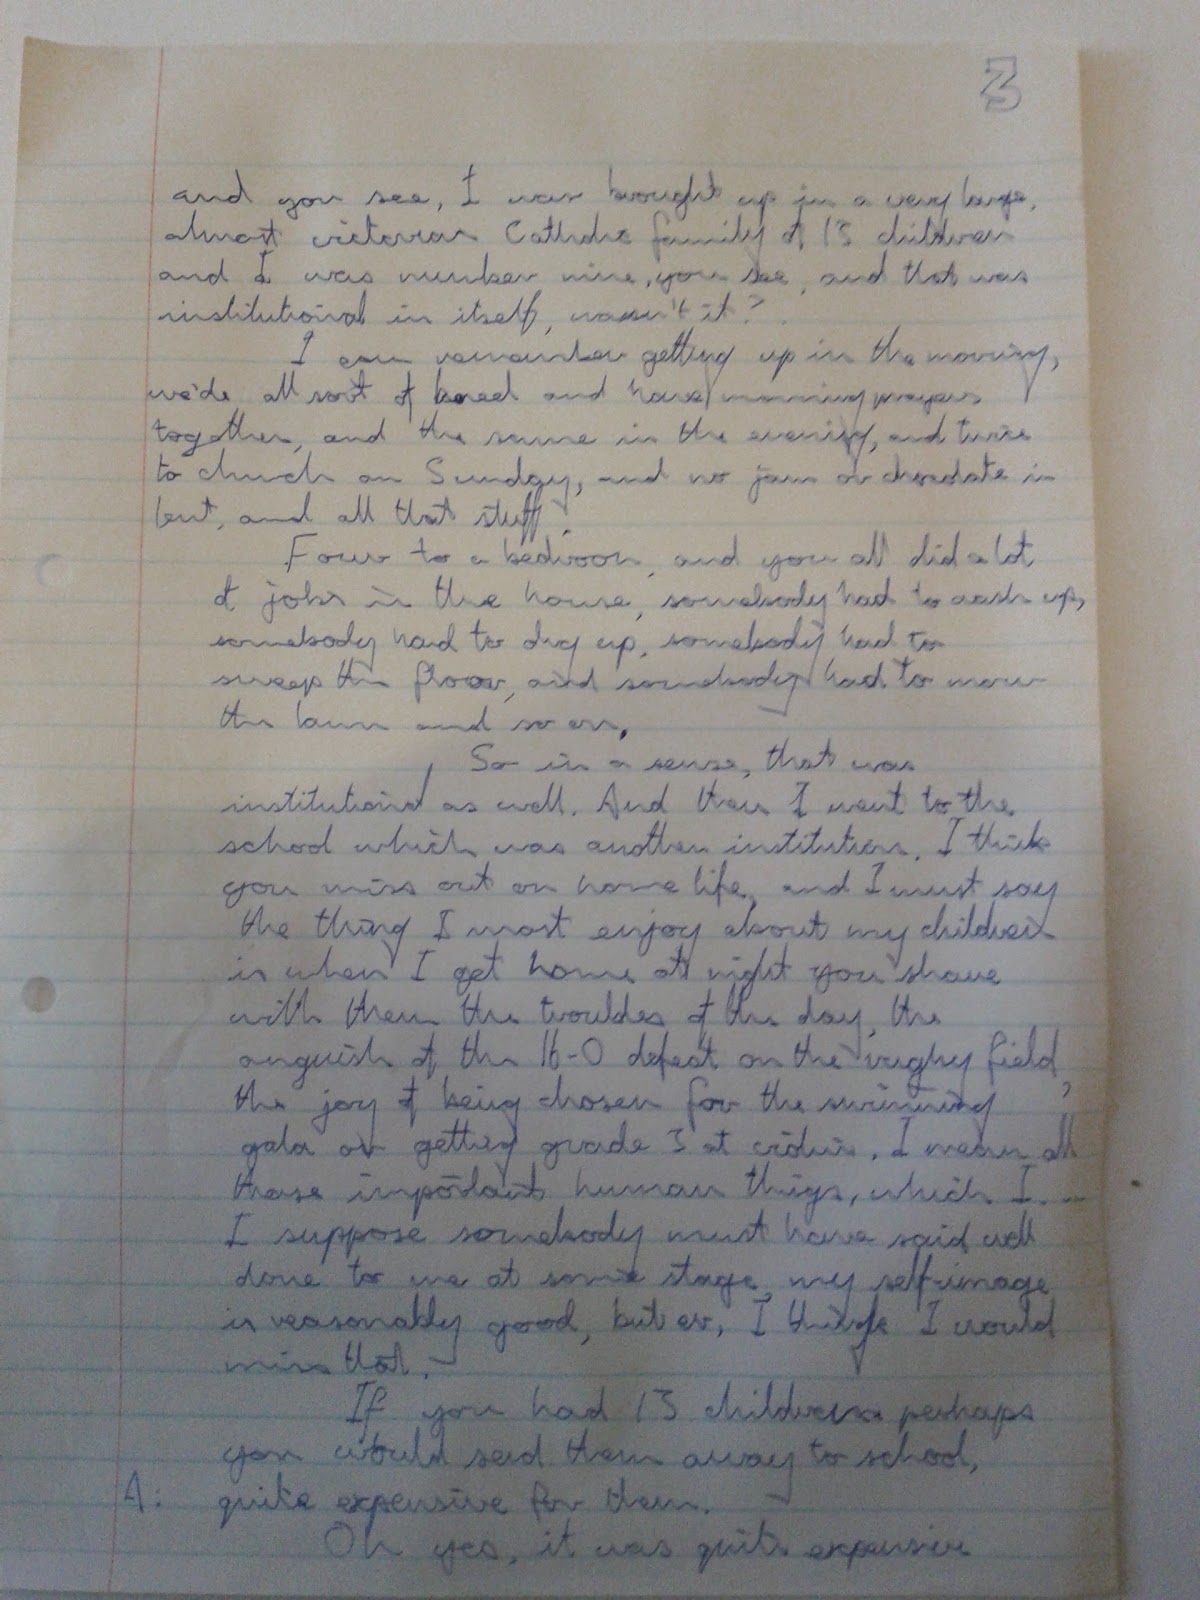 3
and you see, I was brought up in a very large,
almost victorian Catholic family of 13 children
and I was number nine, you see, and that was
institutional in itself, wasn't it?
I can remember getting up in the morning,
we'de all sort of kneel and have morning prayers
together, and the same in the evening, and twice
to church on Sunday, and no jam or chocolate in
lent, and all that stuff.
Four to a bedroom, and you all did a lot
of jobs in the house, somebody had to wash up,
somebody had to dry up, somebody had to
sweep the floor, and somebody had to mow
the lawn and so on.
So in a sense, that was
institutional as well. And then I went to the
school which was another institution. I think
you miss out on home life, and I must say
the thing I most enjoy about my children
is when I get home at night you share
with them the troubles of the day, the
anguish of the 16-0 defeat on the rugby field,
the joy of being chosen for the swimming
gala or getting grade 3 at violin. I mean all
these important human things, which I...
I suppose somebody must have said well
done to me at some stage, my self-image
is reasonably good, but er, I think I would
miss that.
If you had 13 children perhaps
you would send them away to school,
A: quite expensive for them.
Oh yes, it was quite expensive